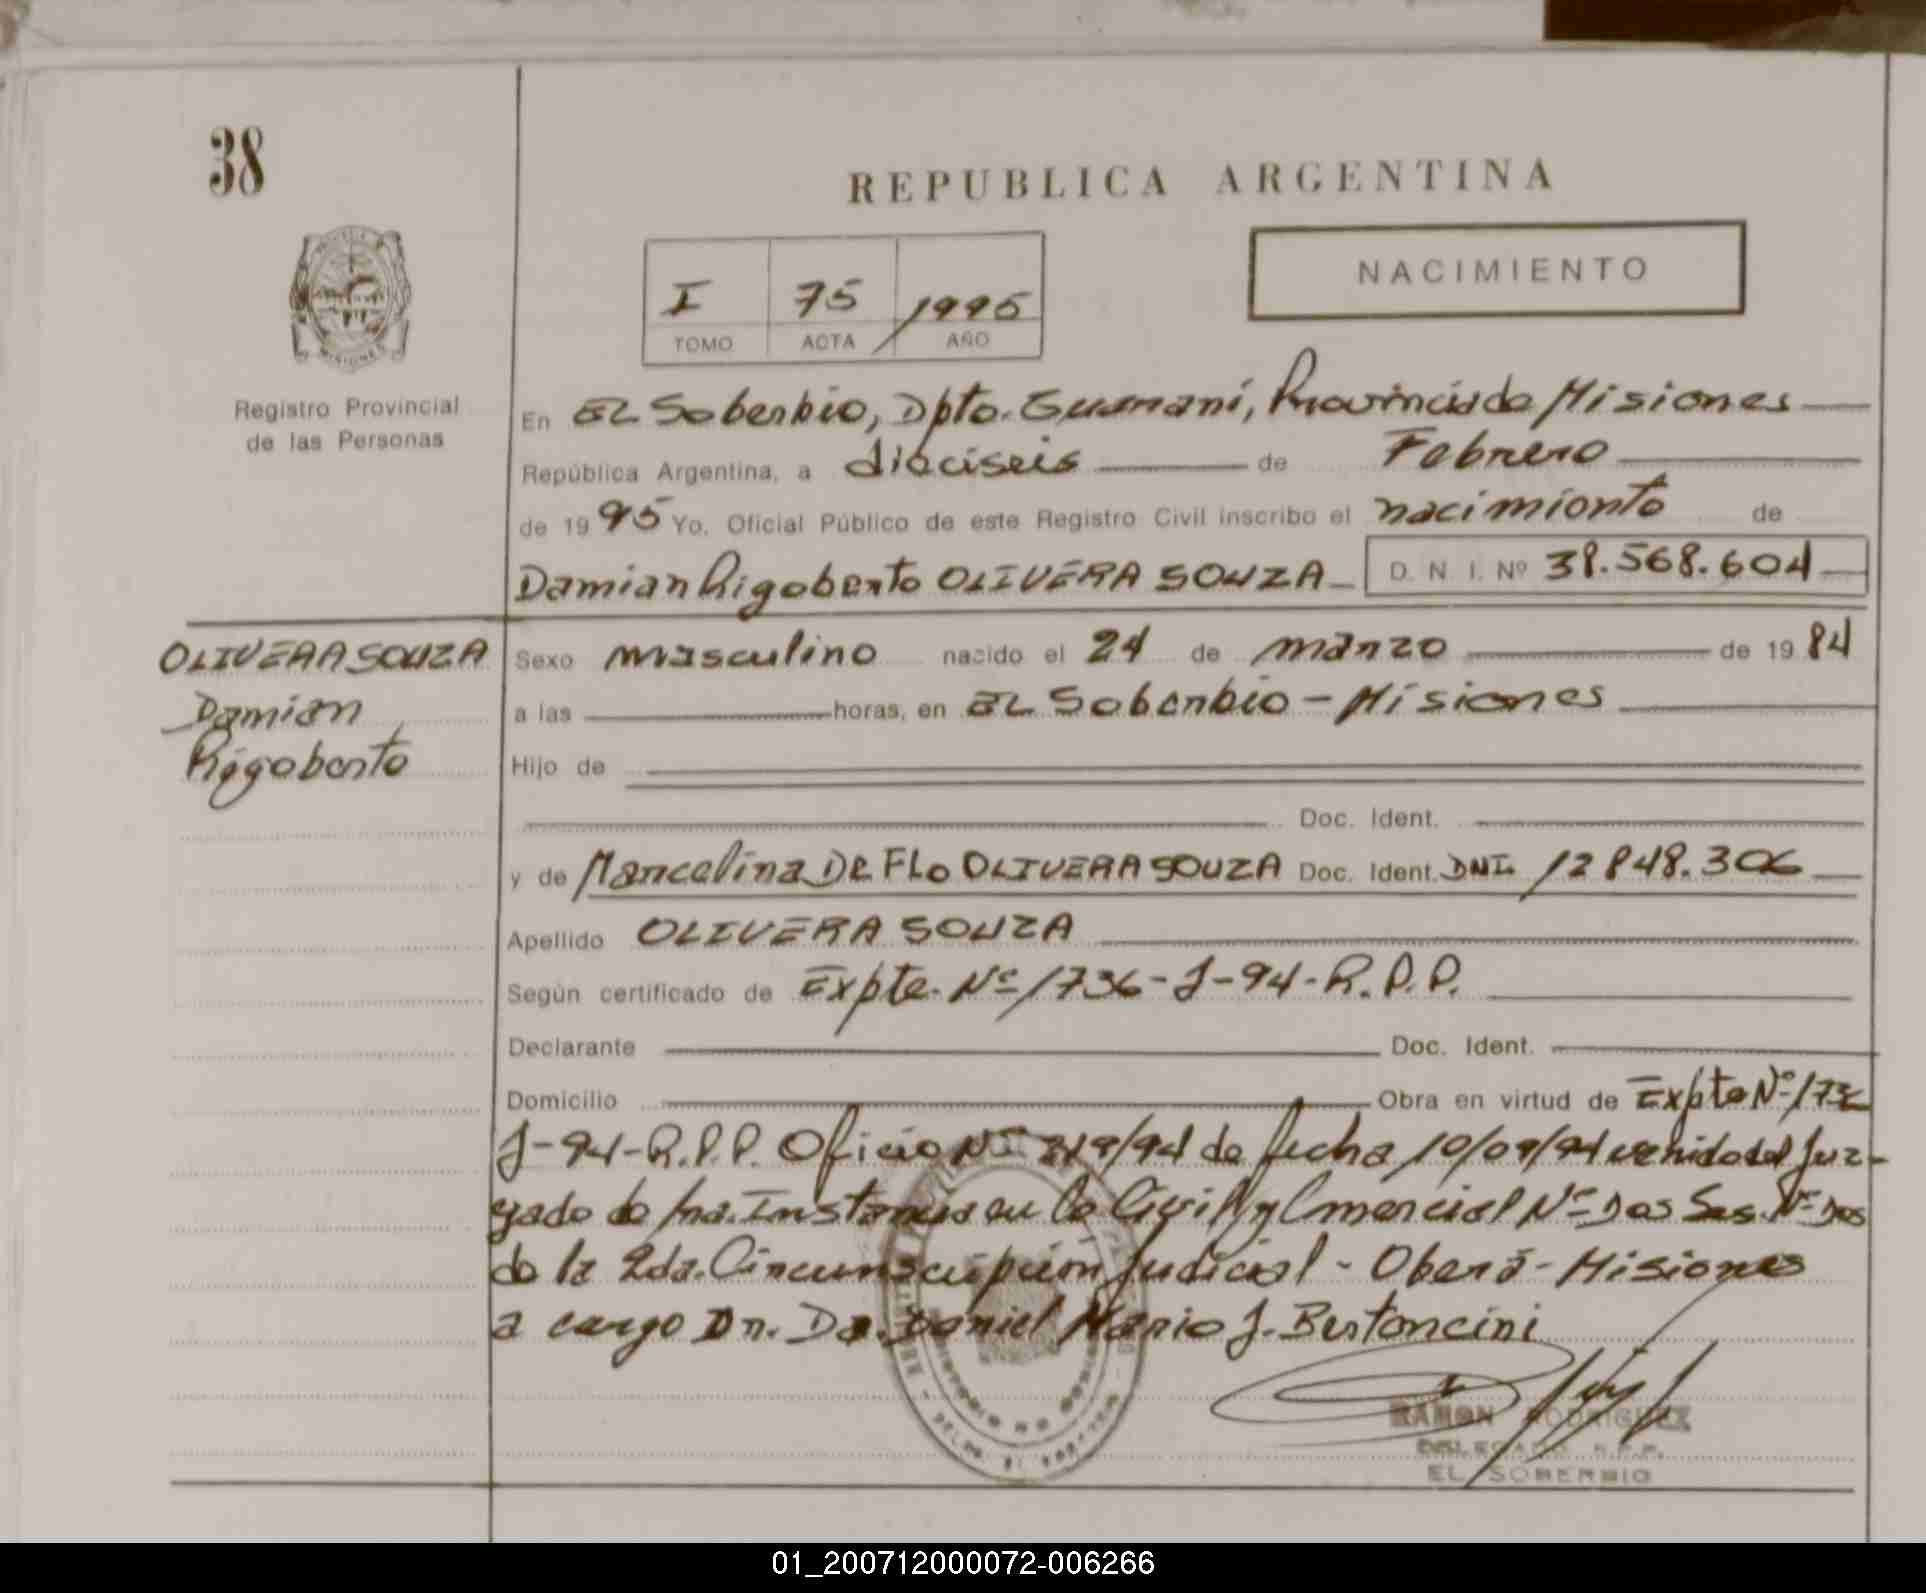 38
REPUBLICA ARGENTINA
NACIMIENTO
I 75 /1995
TOMO ACTA AÑO
MISIONES
Registro Provincial
de las Personas
En EL Soberbio, Dpto. Guaraní, Provincia de Misiones
República Argentina, a dieciseis de Febrero
de 1995 Yo, Oficial Público de este Registro Civil inscribo el nacimiento de
Damian Rigoberto OLIVERA SOUZA D. N. I. Nº 38.568.604
OLIVERA SOUZA
Damian
Rigoberto
Sexo masculino nacido el 24 de marzo de 1984
a las horas, en EL Soberbio - Misiones
Hijo de
Doc. Ident.
y de Marcelina DE FLO OLIVERA SOUZA Doc. Ident. DNI. 12848.306
Apellido OLIVERA SOUZA
Según certificado de Expte. Nº 1736-J-94-R.P.P.
Declarante Doc. Ident.
Domicilio Obra en virtud de Expte Nº 1736
J-94-R.P.P. Oficio Nº 319/94 de fecha 10/09/94 venido del Juz-
gado de 1ra. Instancia en lo Civil y Comercial Nº Dos Sec. Nº Dos
de la 2da. Circunscripción Judicial - Oberá - Misiones
a cargo Dr. Daniel Mario J. Bertoncini
RAMON RODRIGUEZ
DELEGADO R.P.P.
EL SOBERBIO
01_200712000072-006266